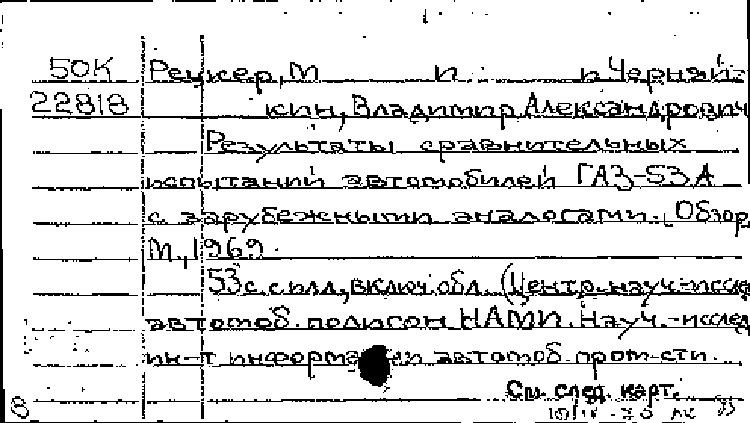 50К Рецкер, М п п Черняй-
22818 кин, Владимир Александрович
Результаты сравнительных
испытаний автомобилей ГАЗ-53А
с зарубежными аналогами. Обзор.
М., 1969.
53 с. с илл., включ. обл. (Центр. науч.-исслед.
автомоб. полигон НАМИ. Науч.-исслед.
ин-т информации автомоб. пром-сти.
См. след. карт.
8